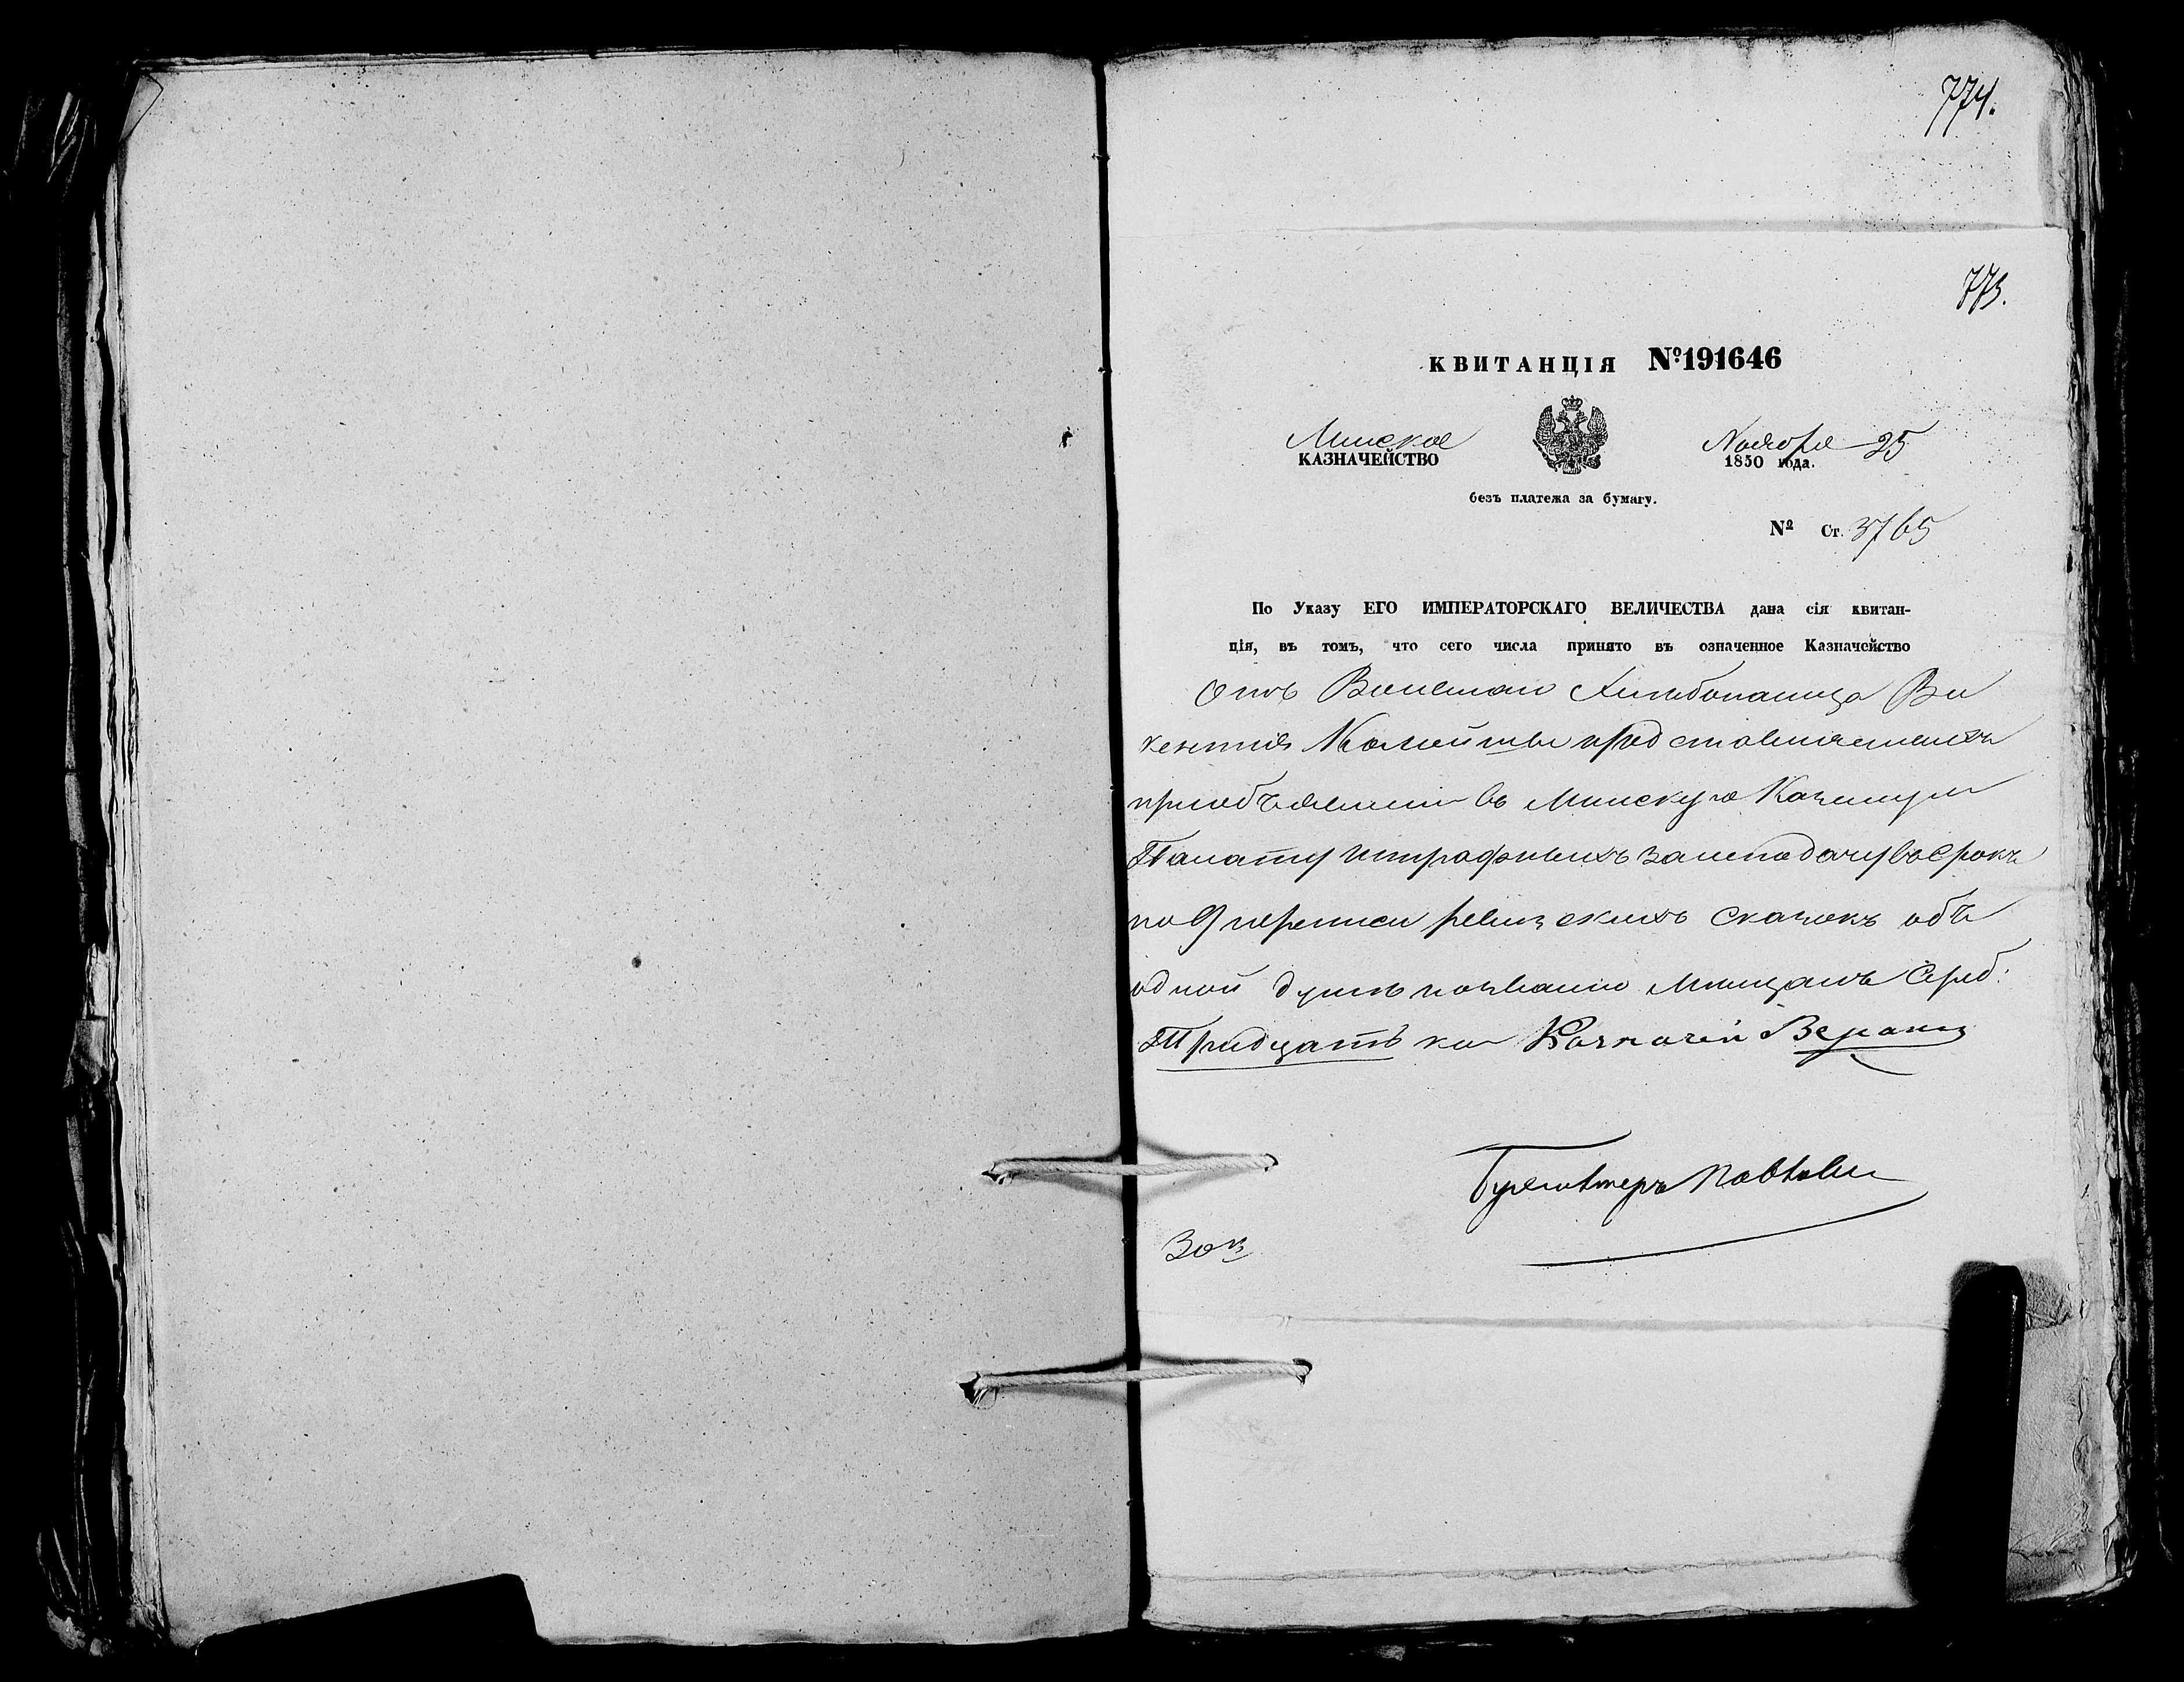 774.
773.
КВИТАНЦІЯ № 191646
Минское Ноября 25
КАЗНАЧЕЙСТВО 1850 года.
безъ платежа за бумагу.
№ Ст. 3765
По Указу ЕГО ИМПЕРАТОРСКАГО ВЕЛИЧЕСТВА дана сія квитан-
ція, въ томъ, что сего числа принято въ означенное Казначейство
Отъ Ви
кентія представленныхъ
при объявленіи въ Минскую Казенную
Палату штрафныхъ за неподачу въ срокъ
по 9 переписи ревизскихъ сказокъ объ
одной душѣ Мищанъ Сереб:
Тридцать ко Казначей
Бухгалтеръ
30 к